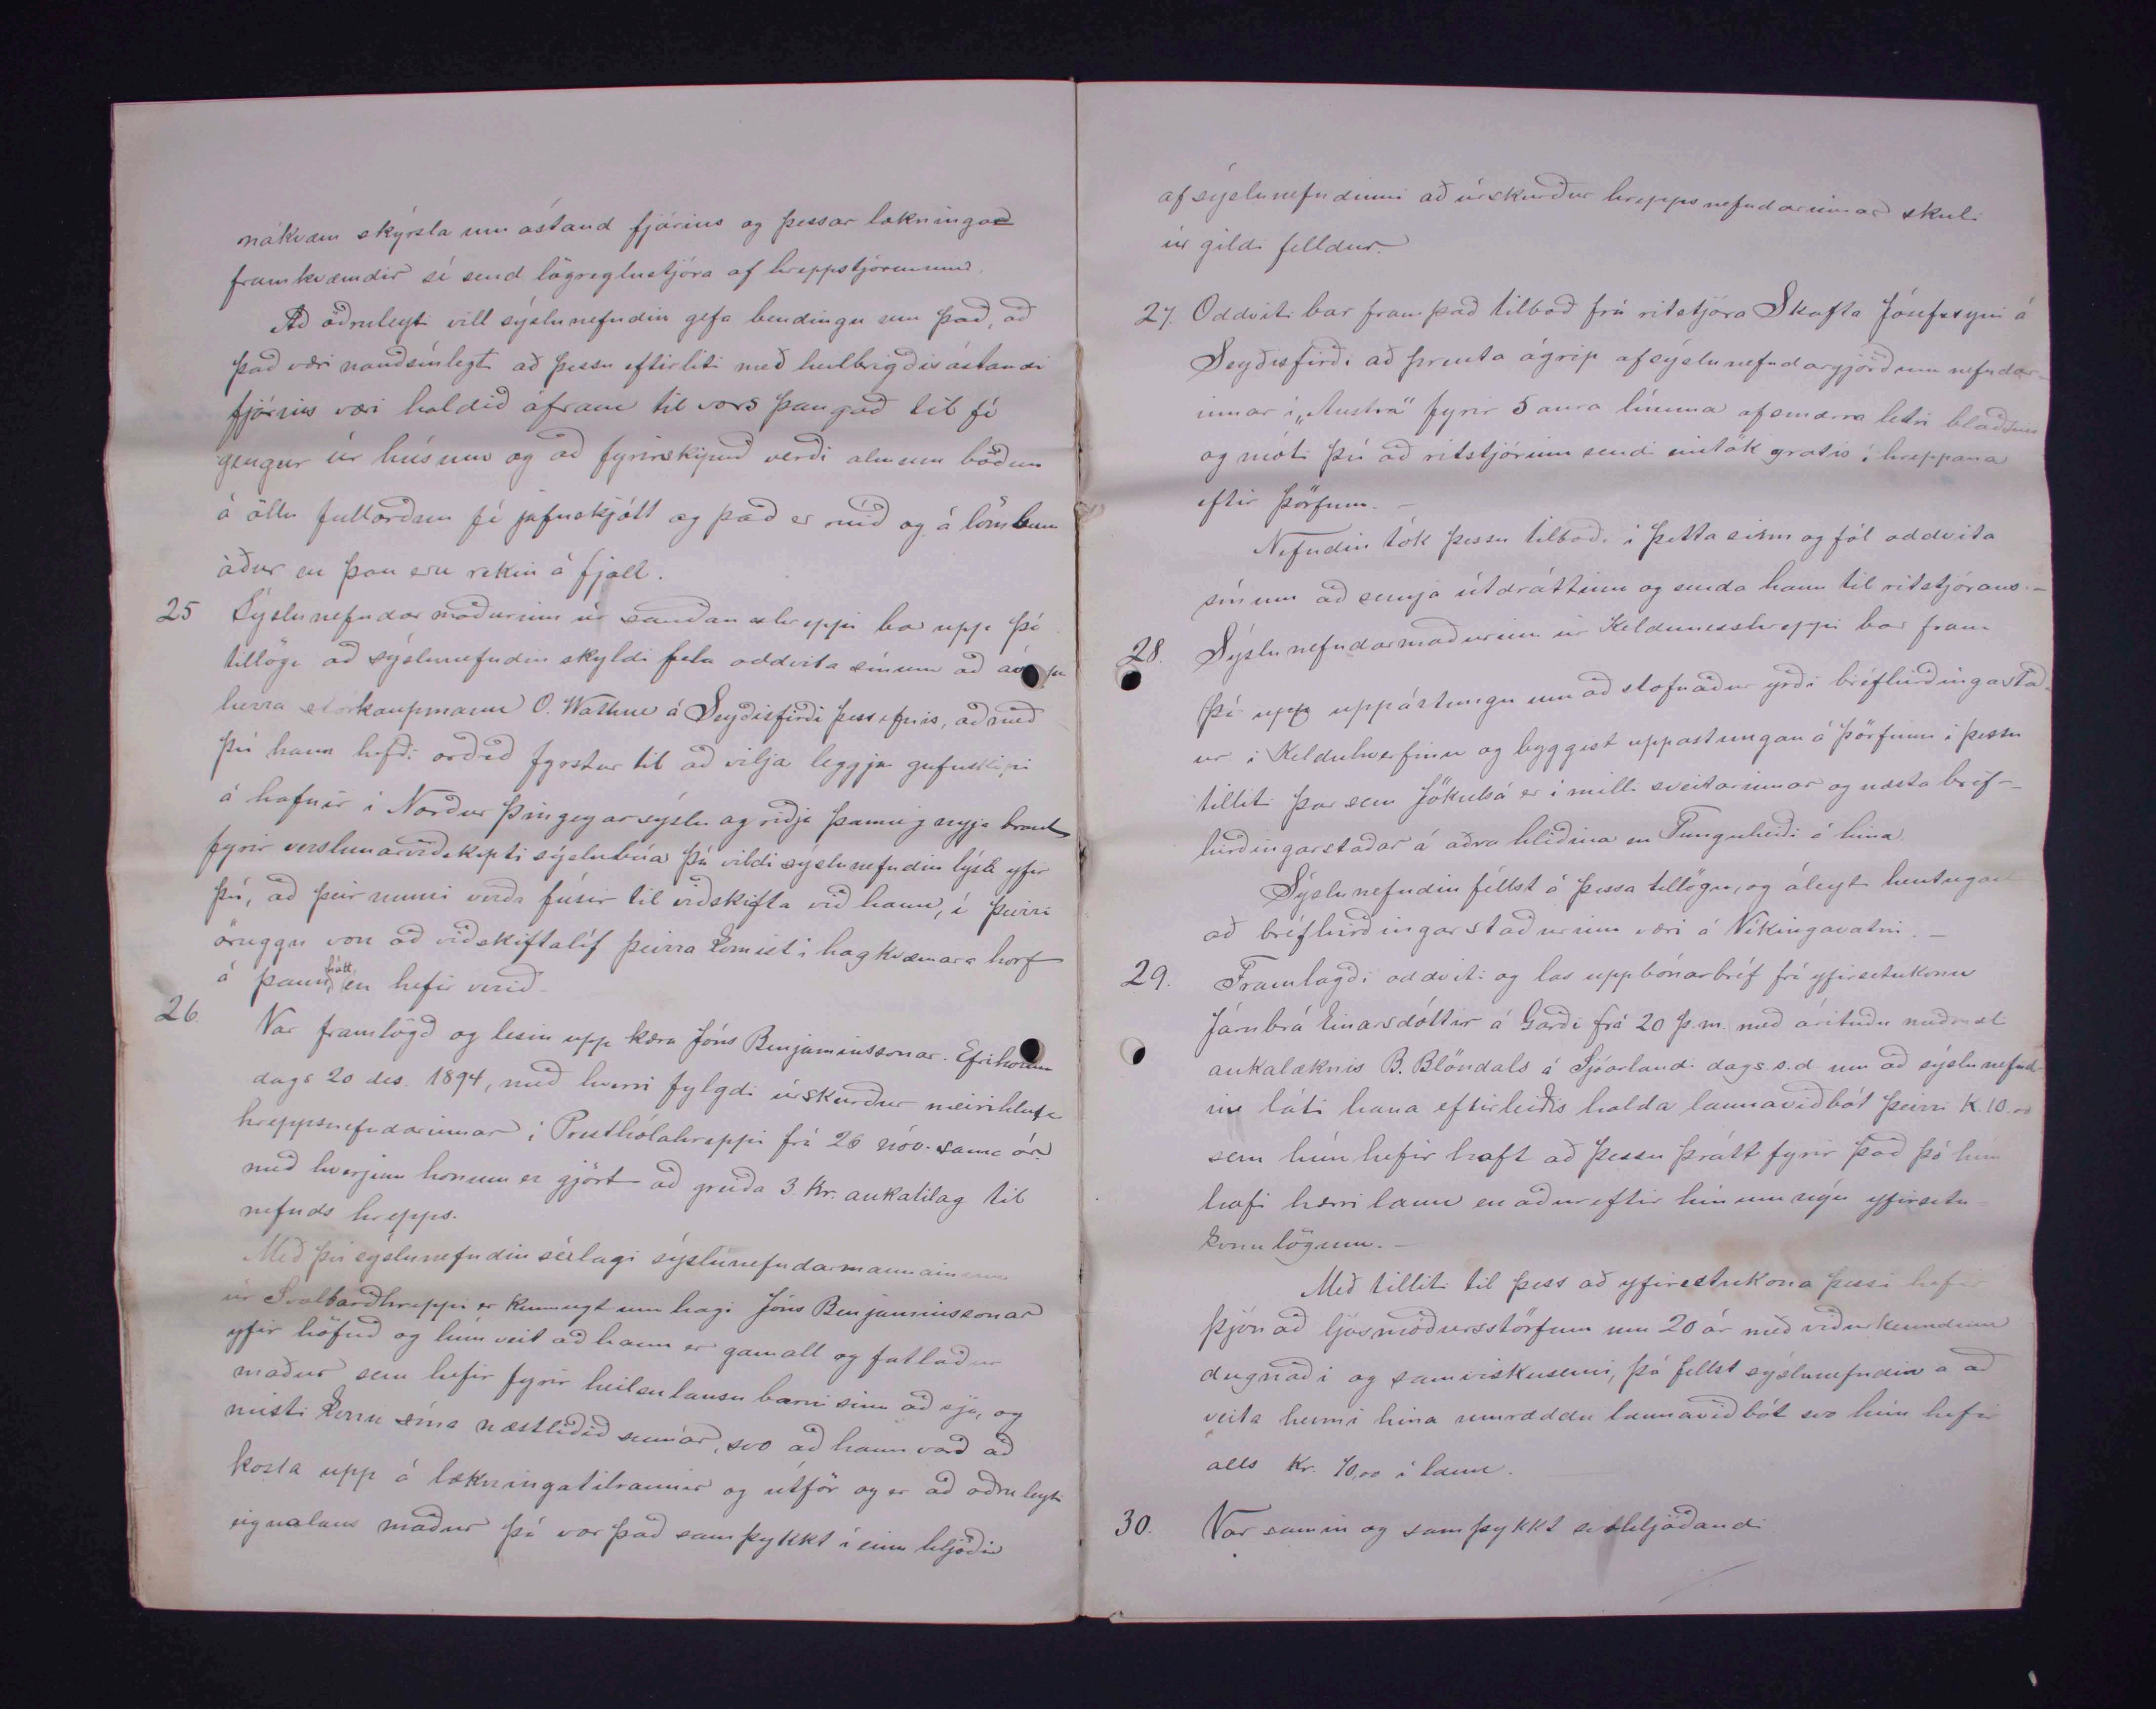 nákvæm skýrsla um ástand fjárins og þessar lækningar
framkvæmdir sé send lögreglustjóra af hreppstjórunum.
Að öðruleyti vill sýslunefndin gefa bendingu um það, að
það væri nauðsínlegt að þessu eftirliti með heilbrigðisástandi
fjárins væri haldið áfram til vors þangað til fé
gengur úr húsum og að fyrirskipuð verði almenn böðun
á öllu fullorðnu fé jafnskjótt og það er rúið og á lömbum
áður en þau eru rekin á fjall.
25 Sýslunefndarmaðurinn úr Sauðaneshreppi bar upp þá
tillögu að sýslunefndin skyldi fela oddvita sínum að
herra stórkaupmann O. Wathne á Seyðisfirði þess efnis, að með
því hann hefði orðið fyrstur til að vilja leggja gufuskipi
á hafnir í Norður Þingeyarsýslu og riðja þannig nyja braut
fyrir verslunarviðskipti sýslubúa þá vildi sýslunefndin lýsa yfir
því, að þeir muni verða fúsir til viðskifta við hann, í þeirri
öruggu von að viðskiftalíf þeirra komist í hagkvæmara horf
á þann hátt, en hefir verið.
26. Var framlögð og lesin upp kæra Jóns Benjaminssonar. Efrihólum
dags 20 des. 1894, með hverri fylgdi úrskurður meirihluta
hreppsnefndarinnar í Presthólahreppi frá 26 nóv. sama ár.
með hverjum honum er gjört að greiða 3 kr. aukatilag til
nefnds hrepps.
Með því sýslunefndin sérlagi sýslunefndarmanninum
úr Svalbarðhreppi er kunnugt um hagi Jóns Benjaminssonar
yfir höfuð og hún veit að hann er gamall og fatlaður
maður sem hefir fyrir heilsulausu barni sínu að sjá, og
misti konu sína næstliðið sumar, svo að hann varð að
kosta upp á lækningatilraunir og útför og er að öðru leyti
eignalaus maður þá var það samþykkt í einu hljóði
af sýslunefndinni að úrskurður hreppsnefndarinnar skuli
úr gildi felldur.
27. Oddviti bar fram það tilboð frá ritstjóra Skafta Jósefssyni á
Seyðisfirði að prenta ágrip af sýslunefndargjörðum nefndar-
innar í "Austra" fyrir 5 aura línuna af smærra letri blaðsins
og móti því að ritstjórinn sendi eintök gratis í hreppana
eftir þörfum. -
Nefndin tók þessu tilboði í þetta sinn og fól oddvita
sínum að semja útdráttinn og senda hann til ritstjórans. -
28. Sýslunefndarmaðurinn úr Kelduneshreppi bar fram
þá upp uppástungu um að stofnaður yrði bréfhirðingastað-
ur í Kelduhverfinu og byggist uppastungan á þörfinni í þessu
tilliti þar sem Jökulsá er í milli sveitarinnar og næsta bréf-
hirðingarstaðar á aðra hliðina en Tunguheiði á hina.
Sýslunefndin féllst á þessa tillögu, og áleyt hentugast
að bréfhirðingarstaðurinn væri á Víkingavatni. -
29. Framlagði oddviti og las upp bónarbréf frá yfirsetukonu
Járnbrá Einarsdóttir á Garði frá 20 þ.m. með árituðu meðmæli
aukalæknis B. Blöndals á Sjóarlandi dags s.d. um að sýslunefnd-
in láti hana eftirleiðis halda launaviðbót þeirri K. 10.00
sem hún hefir haft að þessu þrátt fyrir það þó hún
hafi hærri laun en aður eftir hinum nýu yfirsetu-
konulögum. -
Með tilliti til þess að yfirsetukona þessi hefir
þjónað ljósmóðursstörfum um 20 ár með viðurkenndum
dugnaði og samviskusemi, þá fellst sýslunefndin a að
veita henni hina umræddu launaviðbót svo hún hefir
alls Kr. 70,00 í laun.
30. Var samin og samþykkt svohljóðandi